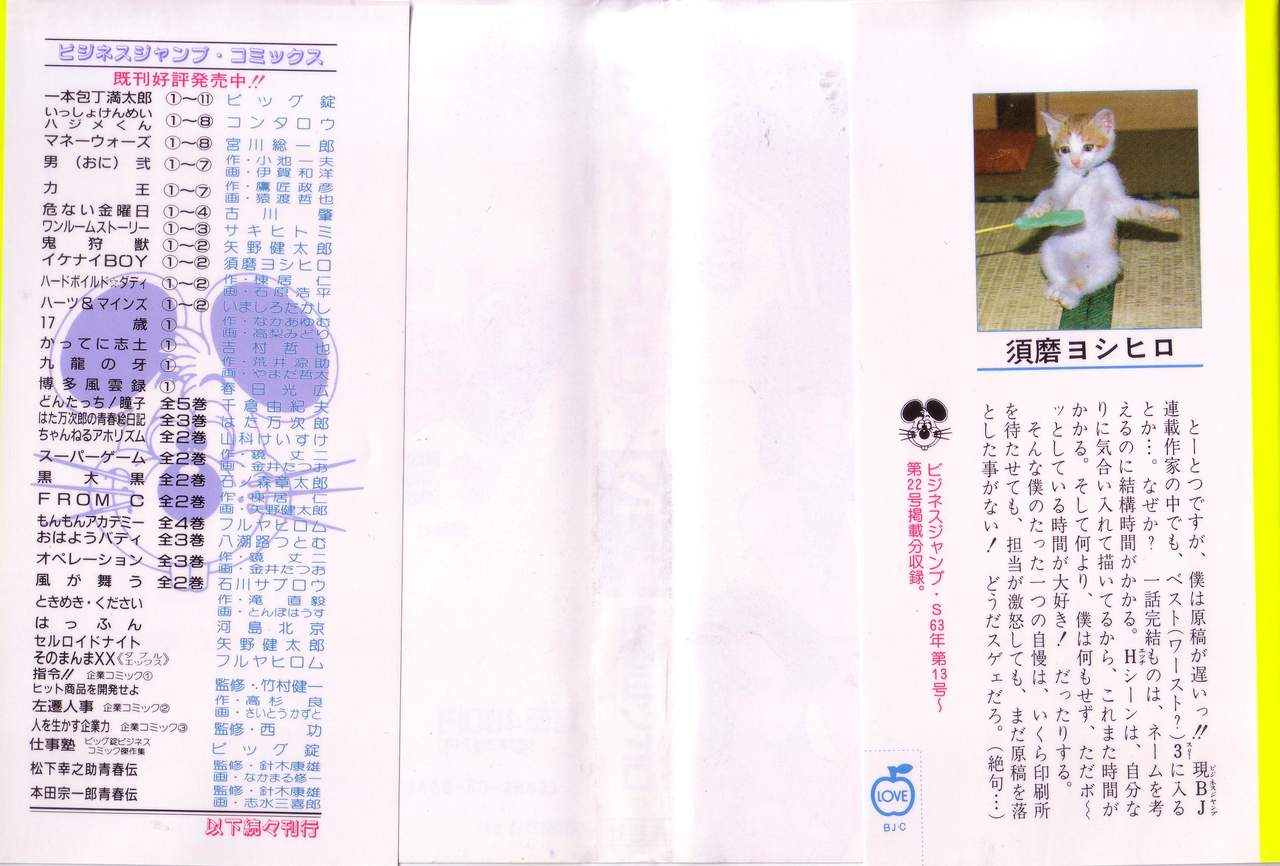 ビジネスジャンプ・コミックス
既刊好評発売中!!
一本包丁満太郎 ①〜⑪ ビッグ錠
いっしょけんめい
ハジメくん ①〜⑧ コンタロウ
マネーウォーズ ①〜⑧ 宮川総一郎
男(おに)弐 ①〜⑦ 作・小池一夫
画・伊賀和洋
力王 ①〜⑦ 作・鷹匠政彦
画・猿渡哲也
危ない金曜日 ①〜④ 古川肇
ワンルームストーリー ①〜③ サキヒトミ
鬼狩獣 ①〜② 矢野健太郎
イケナイBOY ①〜② 須磨ヨシヒロ
ハードボイルド☆ダディ ①〜② 作・棟居仁
画・石原浩平
ハーツ&マインズ ①〜② いましろたかし
17歳 ① 作・なかあゆむ
画・高梨みどり
かってに志士 ① 吉村哲也
九龍の牙 ① 作・荒井涼助
画・やまだ哲太
博多風雲録 ① 春日光広
どんたっち!瞳子 全5巻 千倉由紀夫
はた万次郎の青春絵日記 全3巻 はた万次郎
ちゃんねるアホリズム 全2巻 山科けいすけ
スーパーゲーム 全2巻 作・鏡丈二
画・金井たつお
黒太黒 全2巻 石ノ森章太郎
FROM C 全2巻 作・棟居仁
画・矢野健太郎
もんもんアカデミー 全4巻 フルヤヒロム
おはようバディ 全3巻 八潮路つとむ
オペレーション 全3巻 作・鏡丈二
画・金井たつお
風が舞う 全2巻 石川サブロウ
ときめき・ください 作・滝直毅
画・とんぼはうす
はっふん 河島北京
セルロイドナイト 矢野健太郎
そのまんまXX《ダブルエックス》 フルヤヒロム
指令!! 企業コミック①
ヒット商品を開発せよ 監修・竹村健一
左遷人事 企業コミック② 作・高杉良
画・さいとうかずと
人を生かす企業力 企業コミック③ 監修・西功
仕事塾 ビッグ錠ビジネスコミック傑作集 ビッグ錠
松下幸之助青春伝 監修・針木康雄
画・なかまる修一
本田宗一郎青春伝 監修・針木康雄
画・志水三喜郎
以下続々刊行
須磨ヨシヒロ
とーとつですが、僕は原稿が遅いっ!!現BJ(ビジネスジャンプ)
連載作家の中でも、ベスト(ワースト?)3(スリー)に入る
とか…。なぜか? 一話完結ものは、ネームを考
えるのに結構時間がかかる。H(エッチ)シーンは、自分な
りに気合い入れて描いてるから、これまた時間が
かかる。そして何より、僕は何もせず、ただボ〜
ッとしている時間が大好き! だったりする。
そんな僕のたった一つの自慢は、いくら印刷所
を待たせても、担当が激怒しても、まだ原稿を落
とした事がない! どうだスゲェだろ。(絶句…)
ビジネスジャンプ・S63年第13号〜
第22号掲載分収録。
LOVE
BJ・C